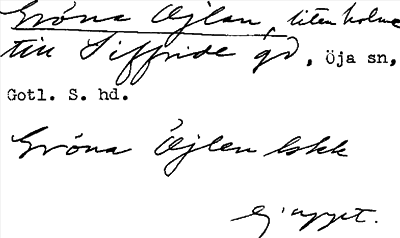 Gröna Öjlan, liten holme
till Siffride gd, Öja sn,
Gotl. S. hd.
Gröna Öjlen bkk
Ej uppt.